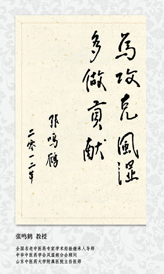 为攻克風湿
多做貢献
张鸣鹤
二零一二年
张鸣鹤 教授
全国名老中医药专家学术经验继承人导师
中华中医药学会风湿病分会顾问
山东中医药大学附属医院主任医师